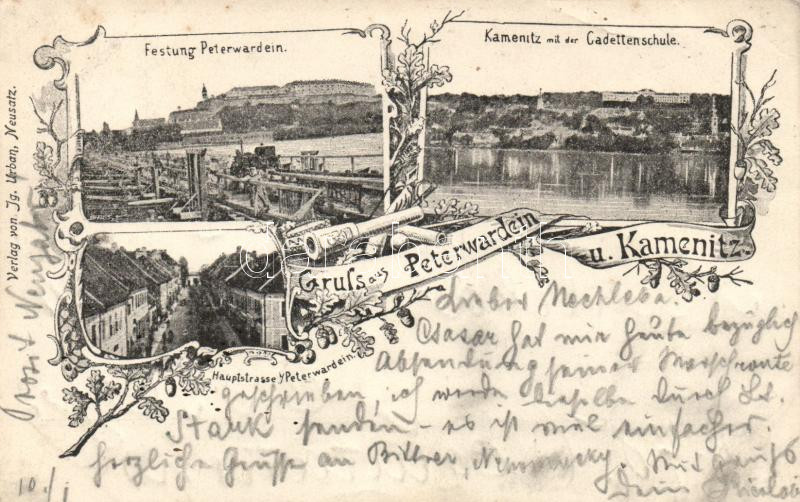 Festung Peterwardein.
Kamenitz mit der Cadettenschule.
Verlag von Jg. Urban, Neusatz.
Gruſs aus Peterwardein
u. Kamenitz.
Hauptstrasse i/ Peterwardein.
Prosit Neujahr
Lieber
Csaszar hat mir heute bezüglich
Absendung seiner Marschroute
geschrieben, ich werde dieselbe durch Lt.
Stank senden - es ist viel einfacher.
herzliche Grüsse an Bittner, Mit Gruss
Dein
10./I